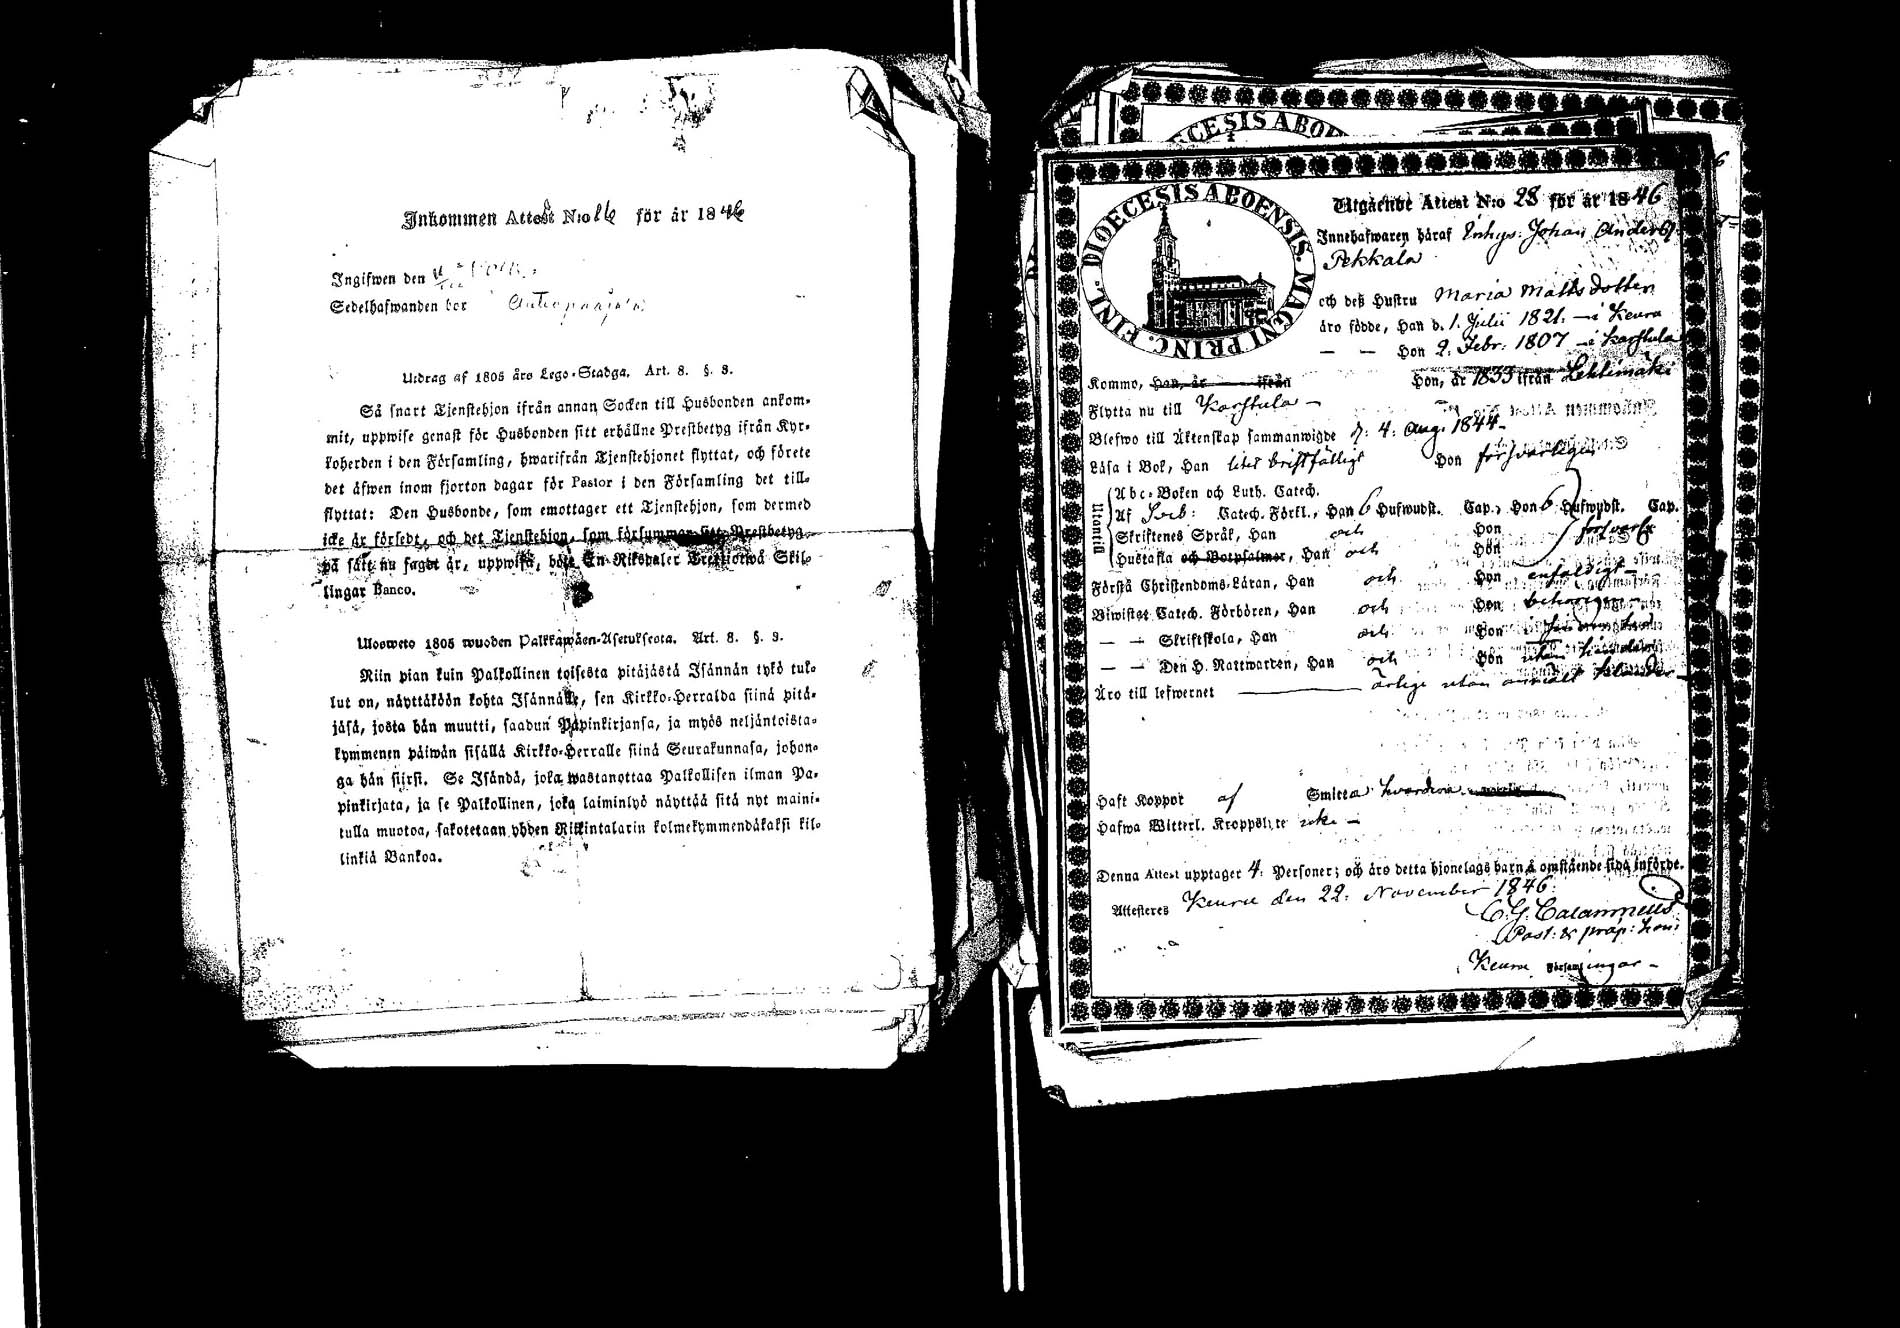 Inkommen Attest N:o för år 1846
Ingifwen den
Sedelhafwanden bor
Utdrag af 1805 års Lego-Stadga. Art. 8. §. 3.
Så snart Tjenstehjon ifrån annan Socken till Husbonden ankom-
mit, uppwise genast för Husbonden sitt erhållne Prestbetyg ifrån Kyr-
koherden i den Församling, hwarifrån Tjenstehjonet flyttat, och förete
det äfwen inom fjorton dagar för Pastor i den Församling det till-
flyttat: Den Husbonde, som emottager ett Tjenstehjon, som dermed
icke är försedt, och det Tjenstehjon, som försummar sitt Prestbetyg
på sätt nu sagdt är, uppwisa, böte En Riksdaler Trettiotwå Skil-
lingar Banco.
Ulosweto 1805 wuoden Palkkawäen-Asetuksesta. Art. 8. §. 3.
Niin pian kuin Palkollinen toisesta pitäjästä Isännän tykö tul-
lut on, näyttäköön kohta Isännälle, sen Kirkko-Herralda siinä pitä-
jäsä, josta hän muutti, saadun Papinkirjansa, ja myös neljäntoista-
kymmenen päiwän sisällä Kirkko-Herralle siinä Seurakunnasa, johon-
ga hän siirsi. Se Isändä, joka wastanottaa Palkollisen ilman Pa-
pinkirjata, ja se Palkollinen, joka laiminlyö näyttää sitä nyt maini-
tulla muotoa, sakotetaan yhden Riikintalarin kolmekymmendäkaksi kil-
linkiä Bankoa.
DIOECESIS ABOENSIS. MAGNI PRINC. FINL.
Utgående Attest N:o 28 för år 1846
Innehafwaren häraf Inhys: Johan Anders
Pekkala
och deß Hustru Maria Matts dotter
äro födde, Han d. 1. Julii 1821. — i Keuru
— — Hon 2. Febr: 1807 — i Karstula
Kommo, Han, år ifrån Hon, år 1833 ifrån Lehtimäki
Flytta nu till Karstula —
Blefwo till Äktenskap sammanwigde d: 4: Aug: 1844 —
Läsa i Bok, Han litet bristfälligt Hon försvarligen
Utantill
Abc-Boken och Luth. Catech.
Af Sveb: Catech. Förkl., Han 6 Hufwudst. Cap., Hon 6 Hufwudst. Cap.
Skriftenes Språk, Han och Hon försvarl
Hustafla och Botpsalmer, Han och Hon
Förstå Christendoms-Läran, Han och Hon enfaldigt —
Biwistat Catech. Förhören, Han och Hon behörigen —
— — Skriftskola, Han och Hon
— — Den H. Nattwarden, Han och Hon utan hinder
Äro till lefwernet ärlige utan anmält klander —
Haft Koppor af Smitta hvardera
Hafwa Witterl. Kroppslyte icke —
Denna Attest upptager 4: Personer; och äro detta hjonelags barn å omstående sida införde.
Attesteres Keuru den 22: November 1846:
C. G. Calamnius
Past: & præp: hon:
Keuru Församlingar —